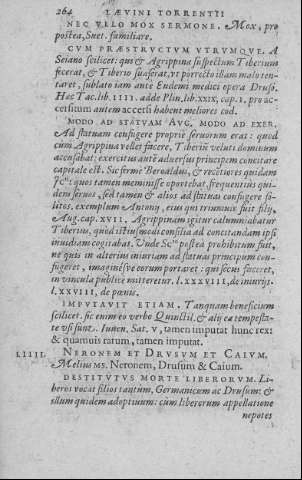 264 LÆVINI TORRENTII
NEC VELO MOX SERMONE. Mox, pro
postea, Suet. familiare.
CVM PRÆSTRVCTVM VTRVMQVE. A
Seiano scilicet: qui & Agrippinæ suspectum Tiberium
fecerat, & Tiberio suaserat, vt porrecto illam malo ten-
taret, sublato iam ante Eudemi medici opera Druso.
Hæc Tac. lib. IIII. adde Plin. lib. XXIX, cap. I, pro ac-
cersitum autem accersi habent meliores cod.
MODO AD STATVAM AVG. MODO AD EXER.
Ad statuam confugere proprie seruorum erat: quod
cum Agrippina vellet facere, Tiberiū veluti dominum
accusabat: exercitus autē aduersus principem concitare
capitale est. Sic ferme Beroaldus, & recētiores quidam
Jcᵗⁱ: quos tamen meminisse oportebat, frequentius qui-
dem seruos, sed tamen & alios ad statuas confugere so-
litos, exemplum Antonij, eius qui triumuir fuit filij,
Aug. cap. XVII. Agrippinam igitur calumniabatur
Tiberius, quod istiusmodi consilia ad concitandam ipsi
inuidiam cogitabat. Vnde Scᵗᵒ postea prohibitum fuit,
ne quis in alterius iniuriam ad statuas principum con-
fugeret, imaginésve eorum portaret: qui secus faceret,
in vincula publice mitteretur. l. XXXVIII, de iniurijs.
LXXVIII, de pœnis.
IMPVTAVIT ETIAM. Tanquam beneficium
scilicet. sic enim eo verbo Quinctil. & alij ea tempesta-
te vsi sunt. Iuuen. Sat. v, tamen imputat hunc rex:
& quamuis rarum, tamen imputat.
LIIII. NERONEM ET DRVSVM ET CAIVM.
Melius MS. Neronem, Drusum & Caium.
DESTITVTVS MORTE LIBERORVM. Li-
beros vocat filios tantum, Germanicum ac Drusum: &
illum quidem adoptiuum: cum liberorum appellatione
nepotes